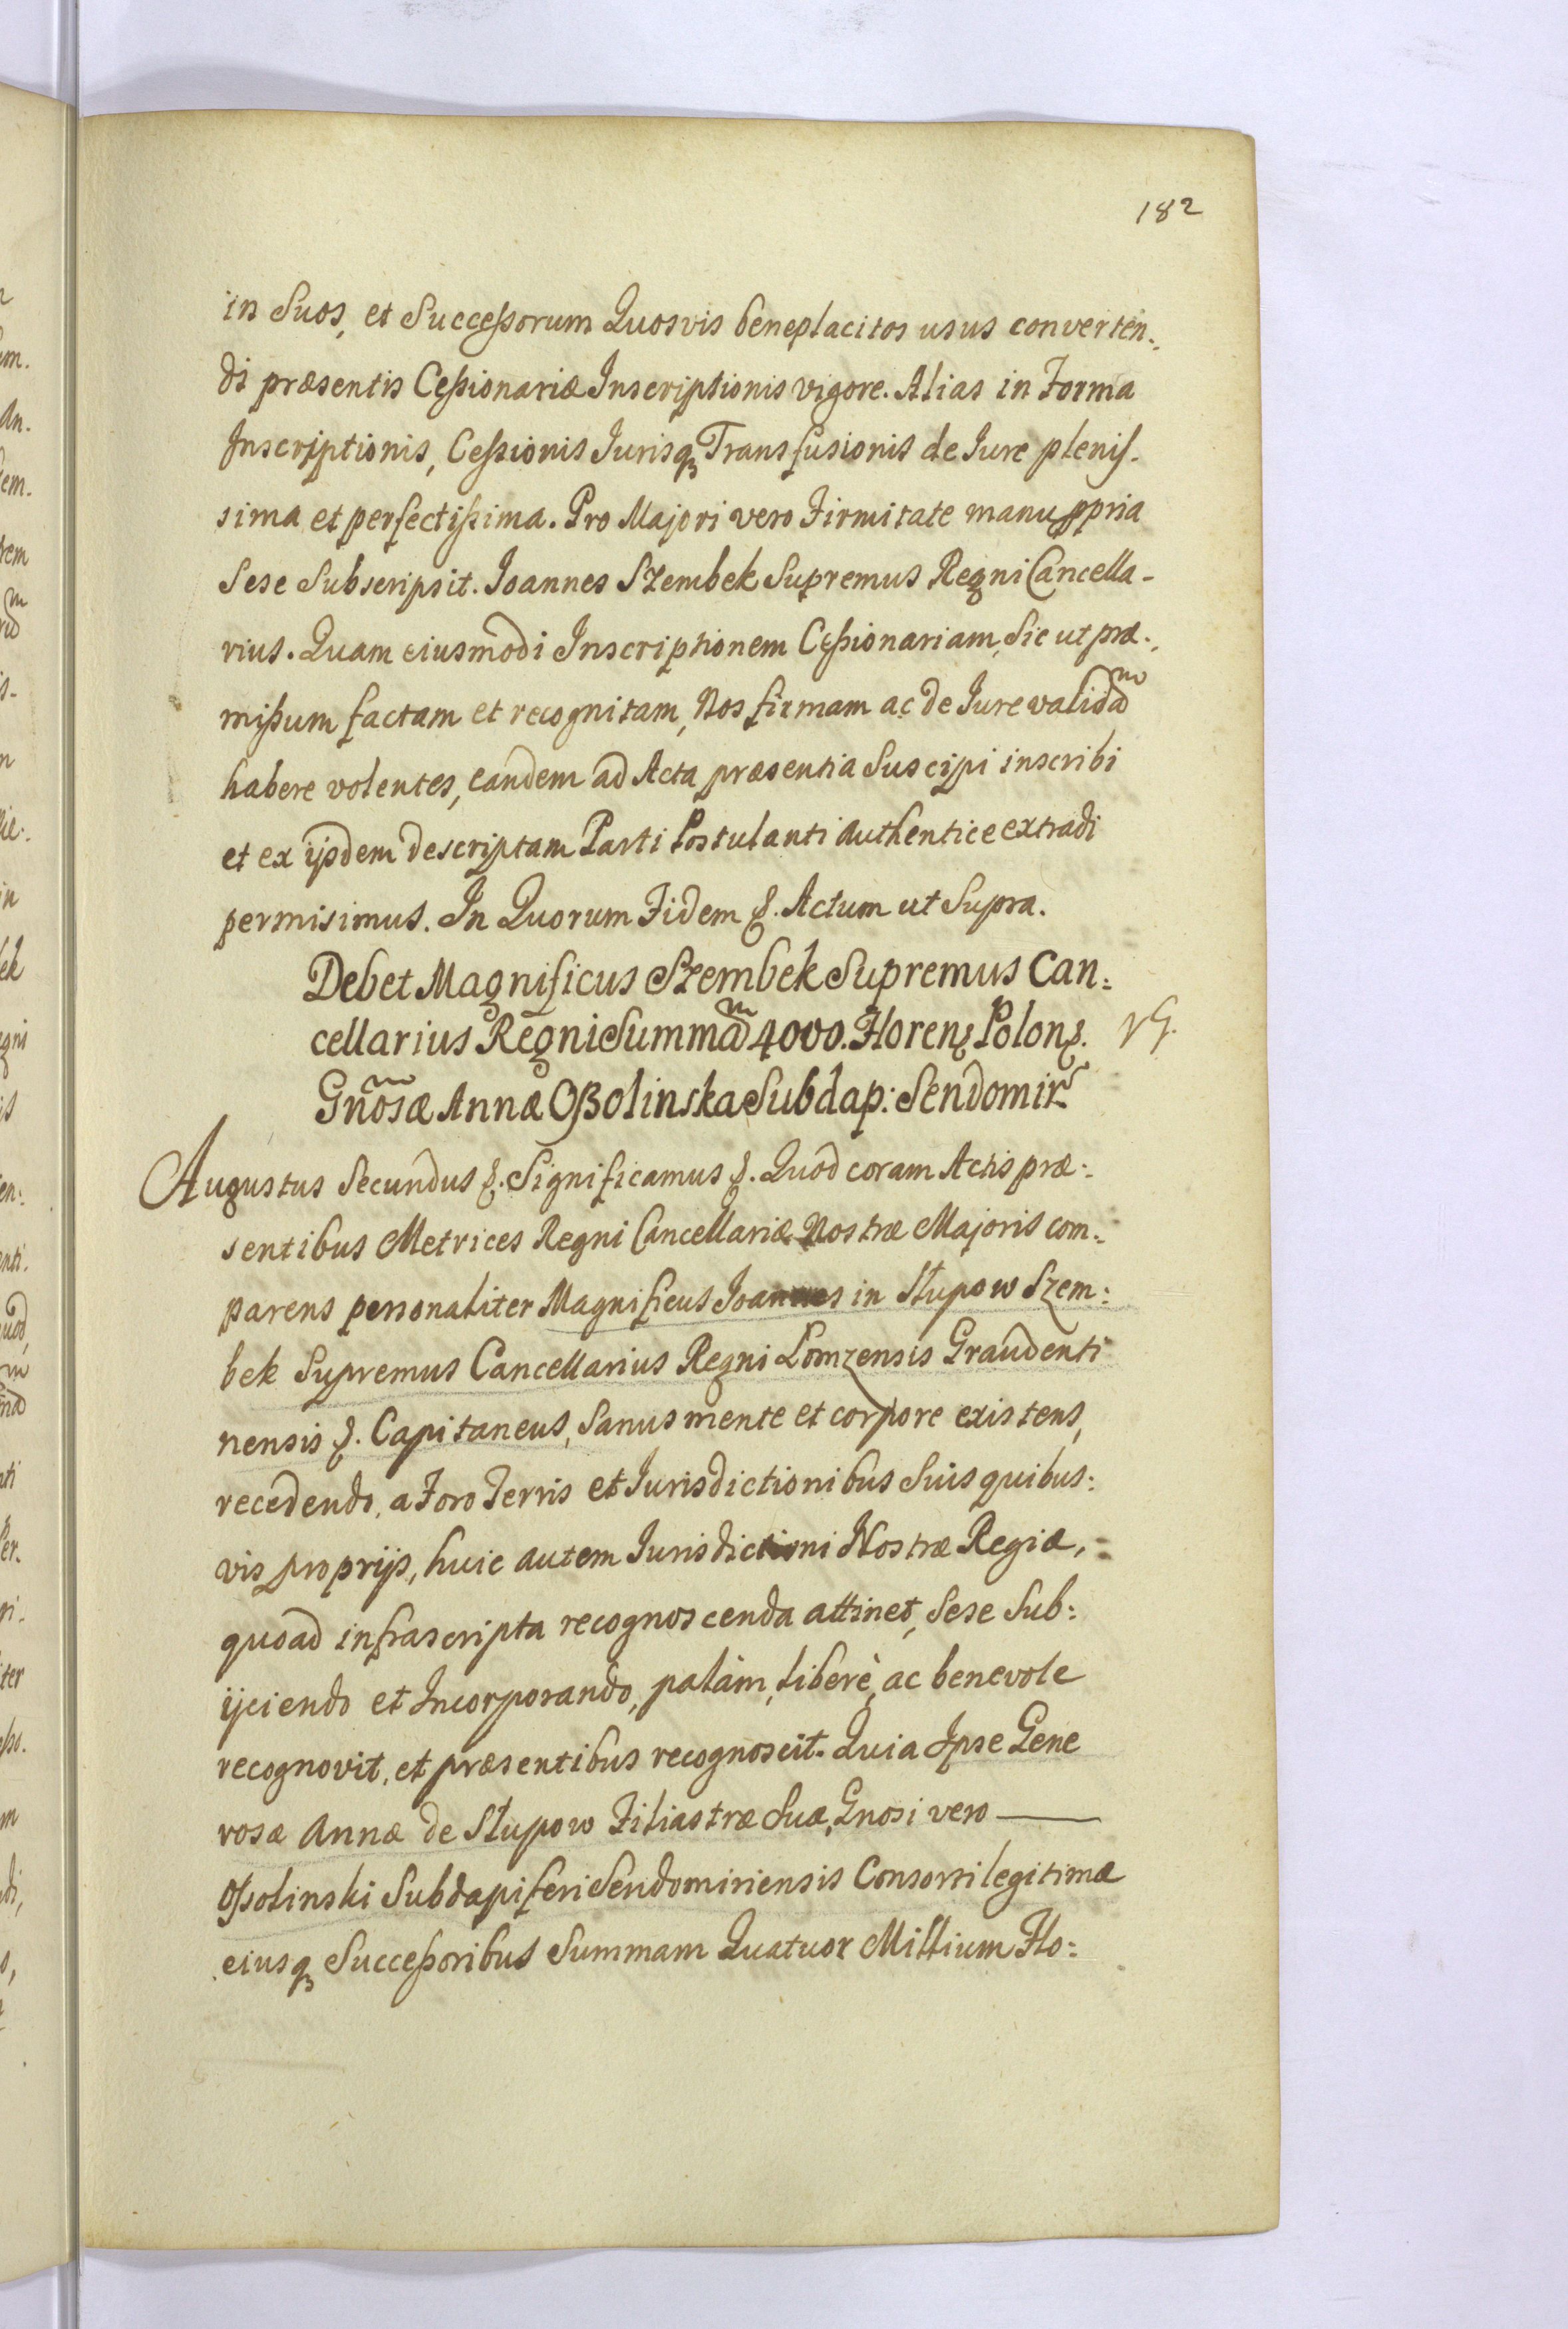 182
in Suos, et Successorum Quosvis beneplacitos usus converten:
di præsentis Cessionariæ Inscriptionis vigore. Alias in Forma
Inscriptionis, Cessionis Jurisqꝫ Transfusionis de Jure plenis-
sima et perfectissima. Pro Majori vero Firmitate manu ppria
Sese Subscripsit. Joannes Szembek Supremus Regni Cancella-
rius. Quam eiusmodi Inscriptionem Cessionariam, Sic ut præ:
missum factam et recognitam, Nos firmam ac de Jure validam
habere volentes, eandem ad Acta præsentia Suscipi inscribi
et ex ijsdem descriptam Parti Postulanti authentice extradi
permisimus. In Quorum Fidem &. Actum ut Supra.
Debet Magnificus Szembek Supremus Can:
cellarius Regni Summam 4000. Floren: Polon:
Gnosæ Annæ Ossolinska Subdap: Sendomir.
Augustus Secundus &. Significamus &. Quod coram Actis præ:
sentibus Metrices Regni Cancellariæ Nostræ Majoris com:
parens personaliter Magnificus Joannes in Słupow Szem:
bek Supremus Cancellarius Regni Łomzensis Graudenti
nensis &. Capitaneus, Sanus mente et corpore existens,
recedendo, a Foro Terris et Jurisdictionibus Suis quibus:
vis proprijs, huic autem Jurisdictioni Nostræ Regiæ,
quoad infrascripta recognoscenda attinet, Sese Sub:
ijciendo et Incorporando, palàm, liberè, ac benevole
recognovit, et præsentibus recognoscit. Quia Ipse Gene
rosæ Annæ de Słupow Filiastræ Suæ, Gnosi vero —
Ossolinski Subdapiferi Sendomiriensis Consorti legitimæ
eiusqꝫ Successoribus Summam Quatuor Millium Flo: